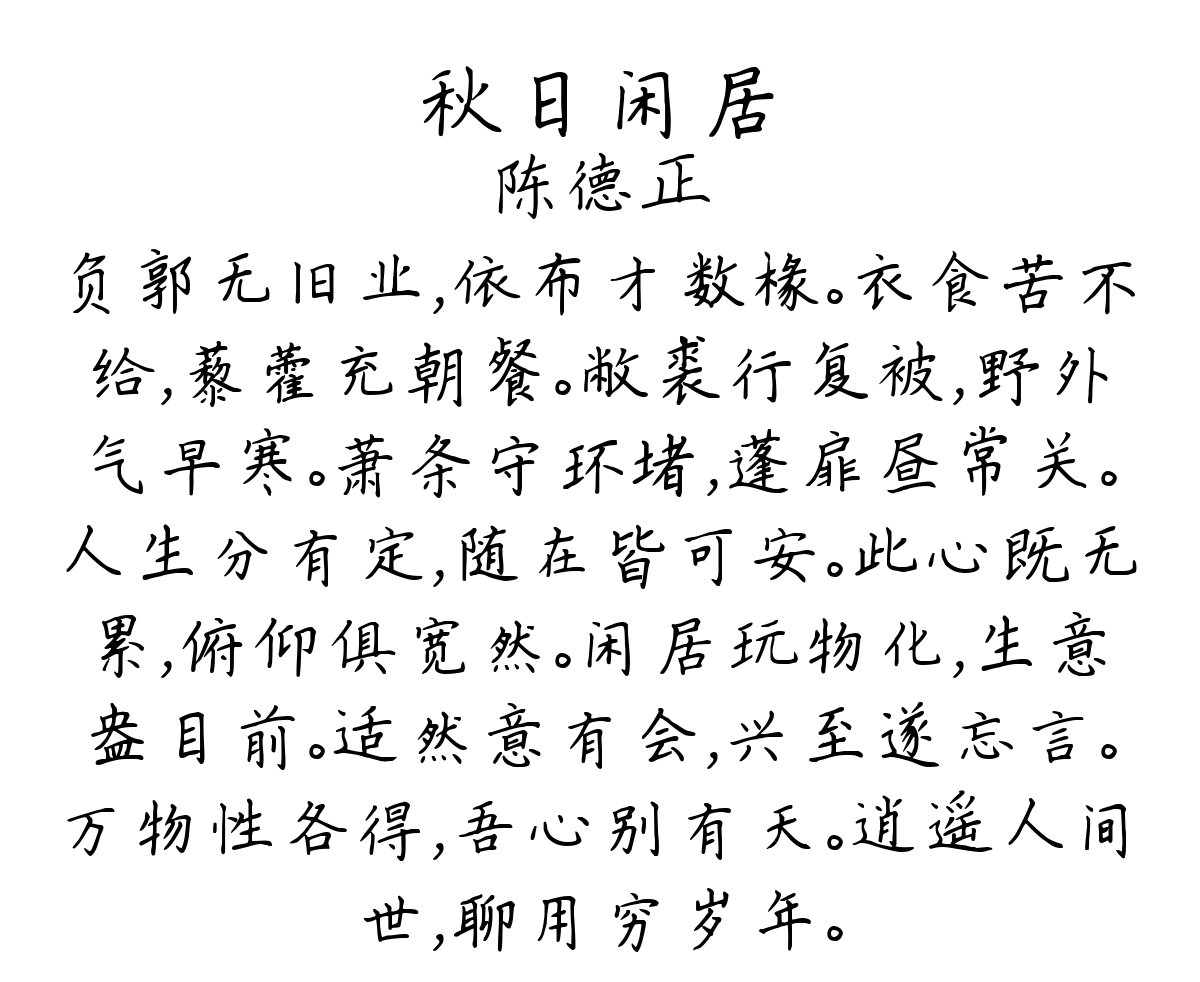 秋日闲居
陈德正
负郭无旧业,依布才数椽。衣食苦不
给,藜藿充朝餐。敝裘行复被,野外
气早寒。萧条守环堵,蓬扉昼常关。
人生分有定,随在皆可安。此心既无
累,俯仰俱宽然。闲居玩物化,生意
盎目前。适然意有会,兴至遂忘言。
万物性各得,吾心别有天。逍遥人间
世,聊用穷岁年。